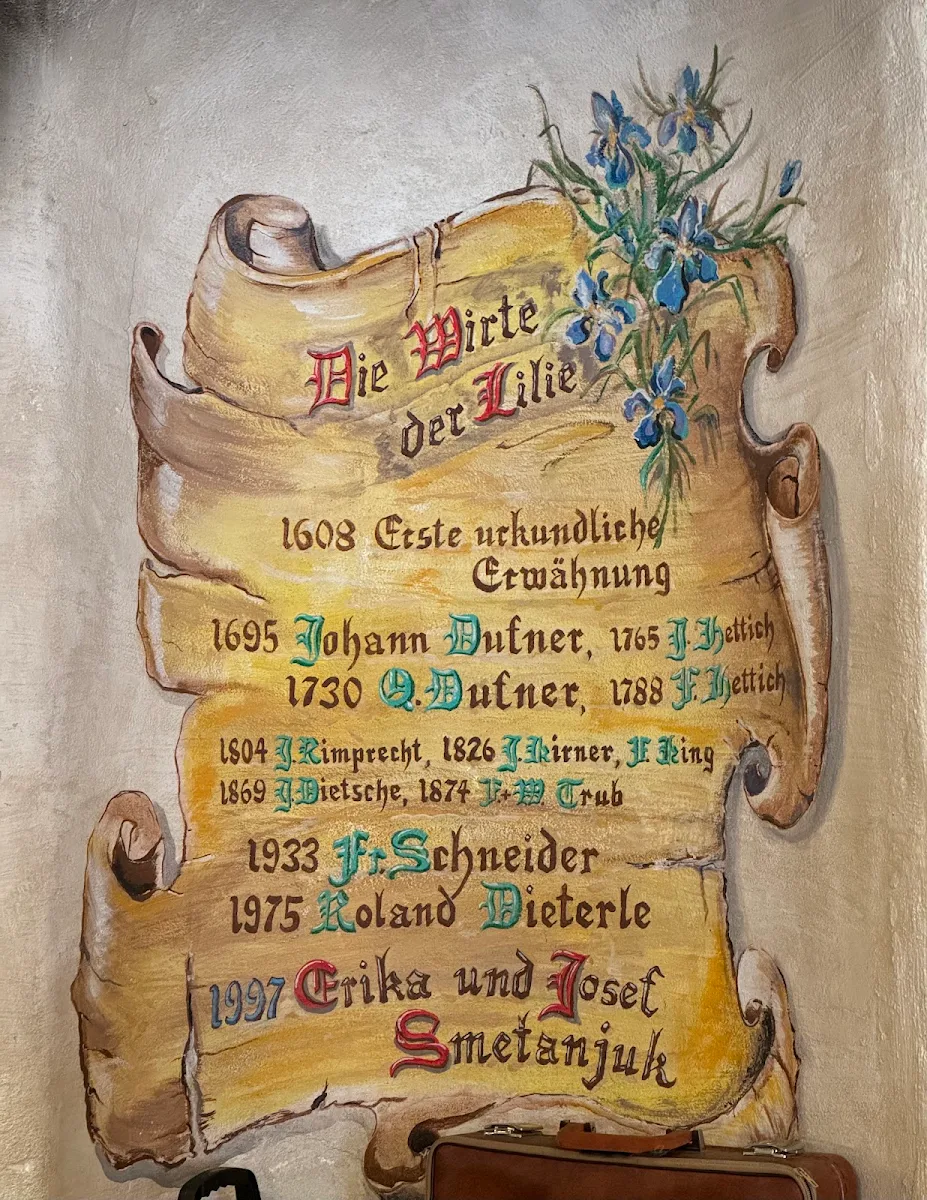 Die Wirte
der Lilie
1608 Erste urkundliche
Erwähnung
1695 Johann Dufner, 1765 J. Hettich
1730 Q. Dufner, 1788 F. Hettich
1804 J. Rimprecht, 1826 J. Kirner, F. King
1869 J Dietsche, 1874 F+W Trub
1933 Fr. Schneider
1975 Roland Dieterle
1997 Erika und Josef
Smetanjuk